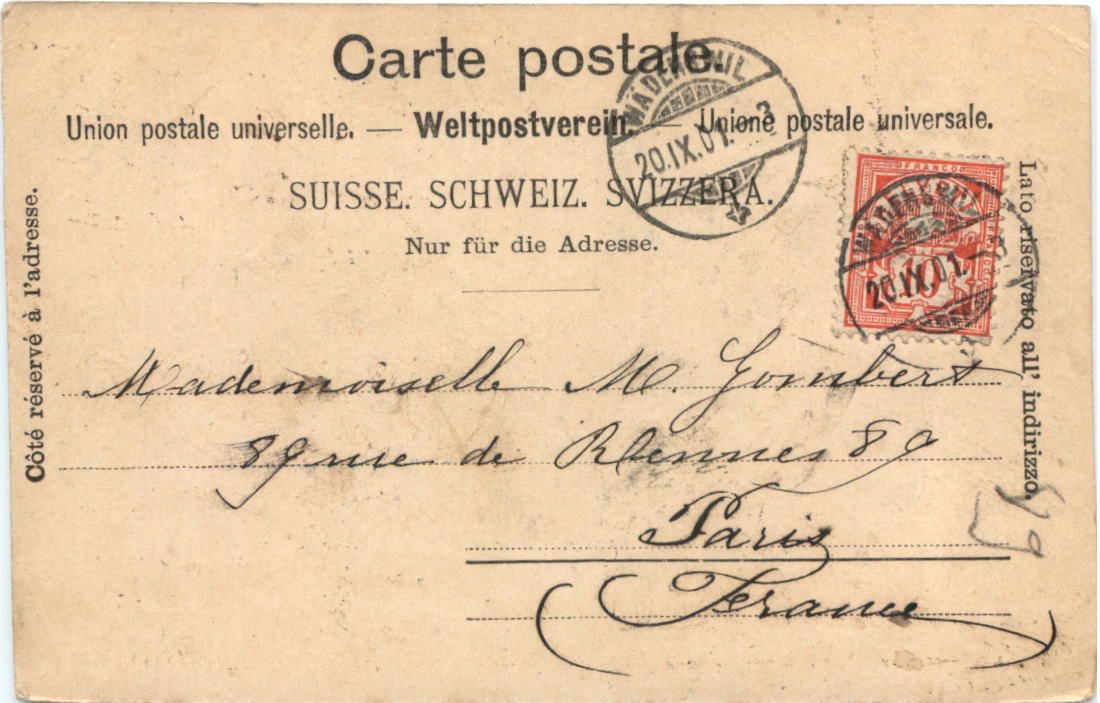 Carte postale.
Union postale universelle. — Weltpostverein. — Unione postale universale.
SUISSE. SCHWEIZ. SVIZZERA.
Nur für die Adresse.
WÄDENSWIL
20.IX.01.–3
FRANCO
WÄDENSWIL
20.IX.01.–3
10
Côté réservé à l'adresse.
Lato riservato all' indirizzo.
Mademoiselle M. Gombert
89 rue de Rennes 89
Paris
(France)